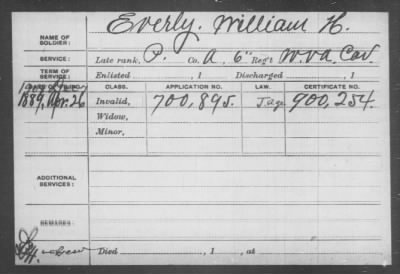 Everly, William H.
NAME OF SOLDIER:
SERVICE: Late rank, P. Co. A, 6" Reg't W.Va. Cav.
TERM OF SERVICE: Enlisted , 1 Discharged , 1
DATE OF FILING. CLASS. APPLICATION NO. LAW. CERTIFICATE NO.
1889, Apr. 26 Invalid, 700,895. 900,254.
Widow,
Minor,
ADDITIONAL SERVICES:
REMARKS:
Died , 1 , at